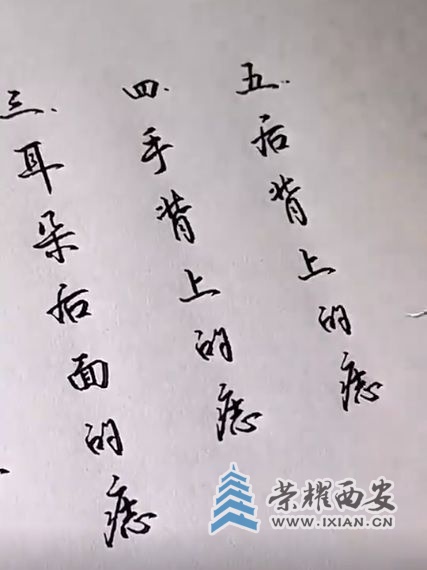 三.耳朵后面的痣
四.手背上的痣
五.后背上的痣
荣耀西安
WWW.IXIAN.CN